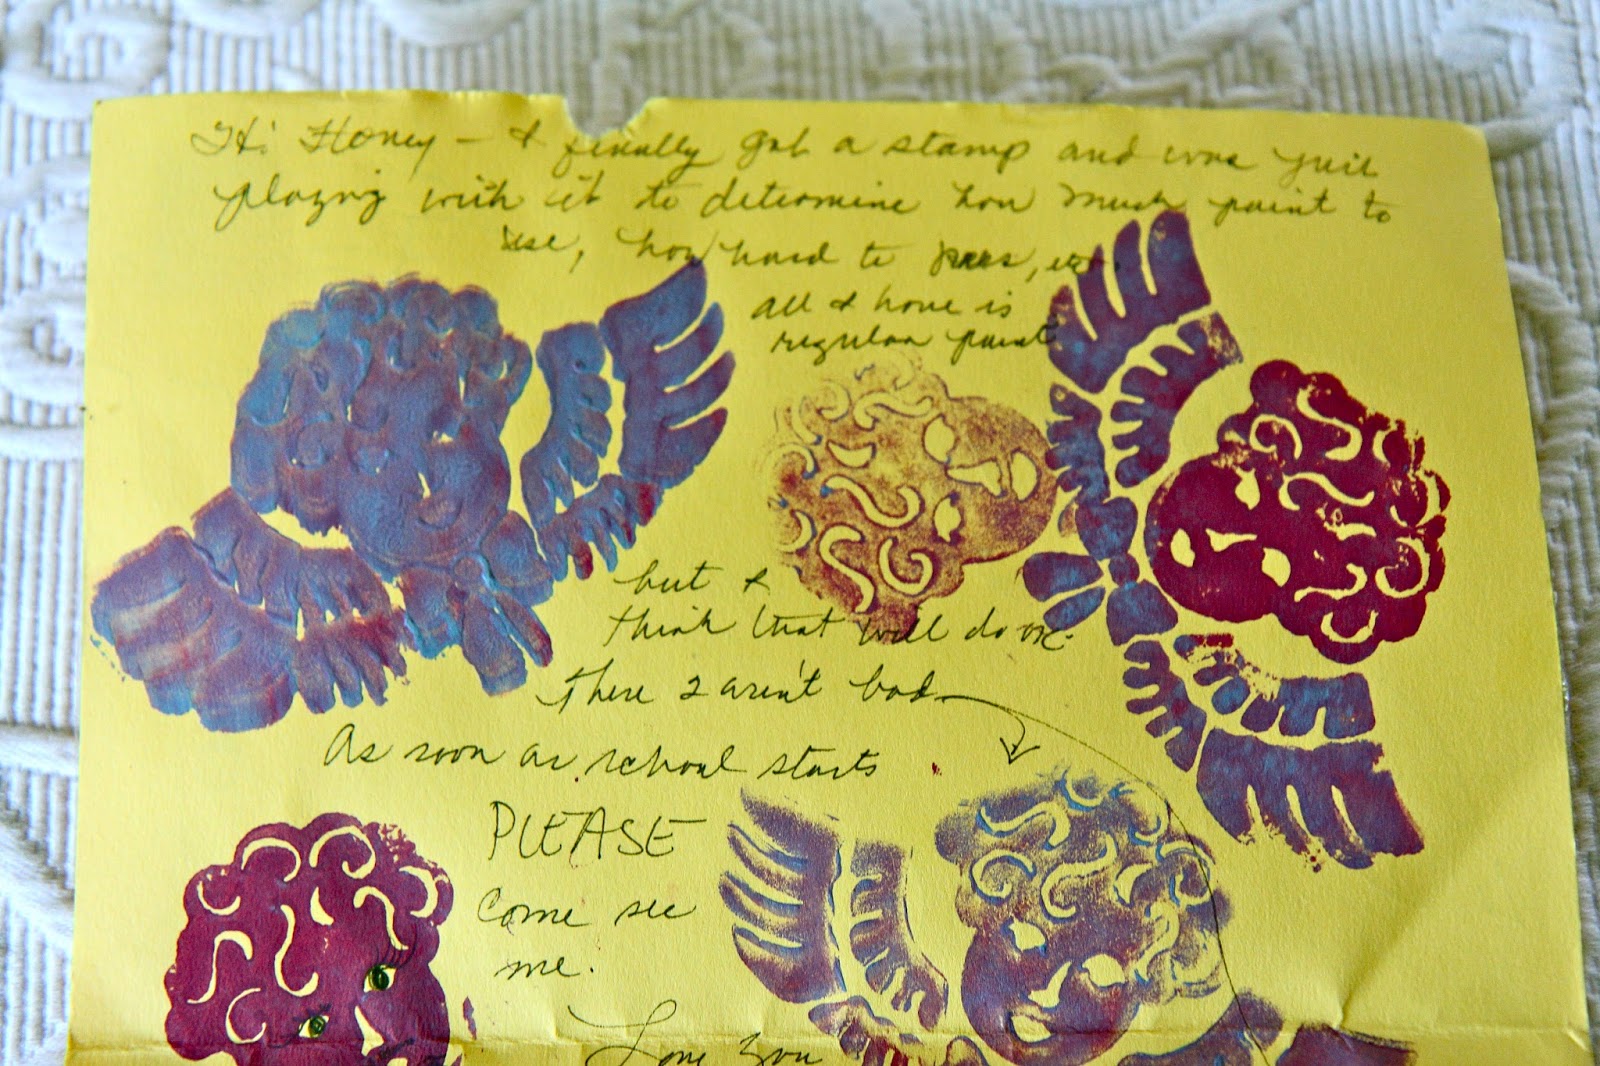 Hi Honey – I finally got a stamp and was just
playing with it to determine how much paint to
use, how hard to press, etc.
All I have is
regular paint
but I
think that will do ok.
There 2 aren't bad
As soon as school starts
PLEASE
come see
me.
Love you